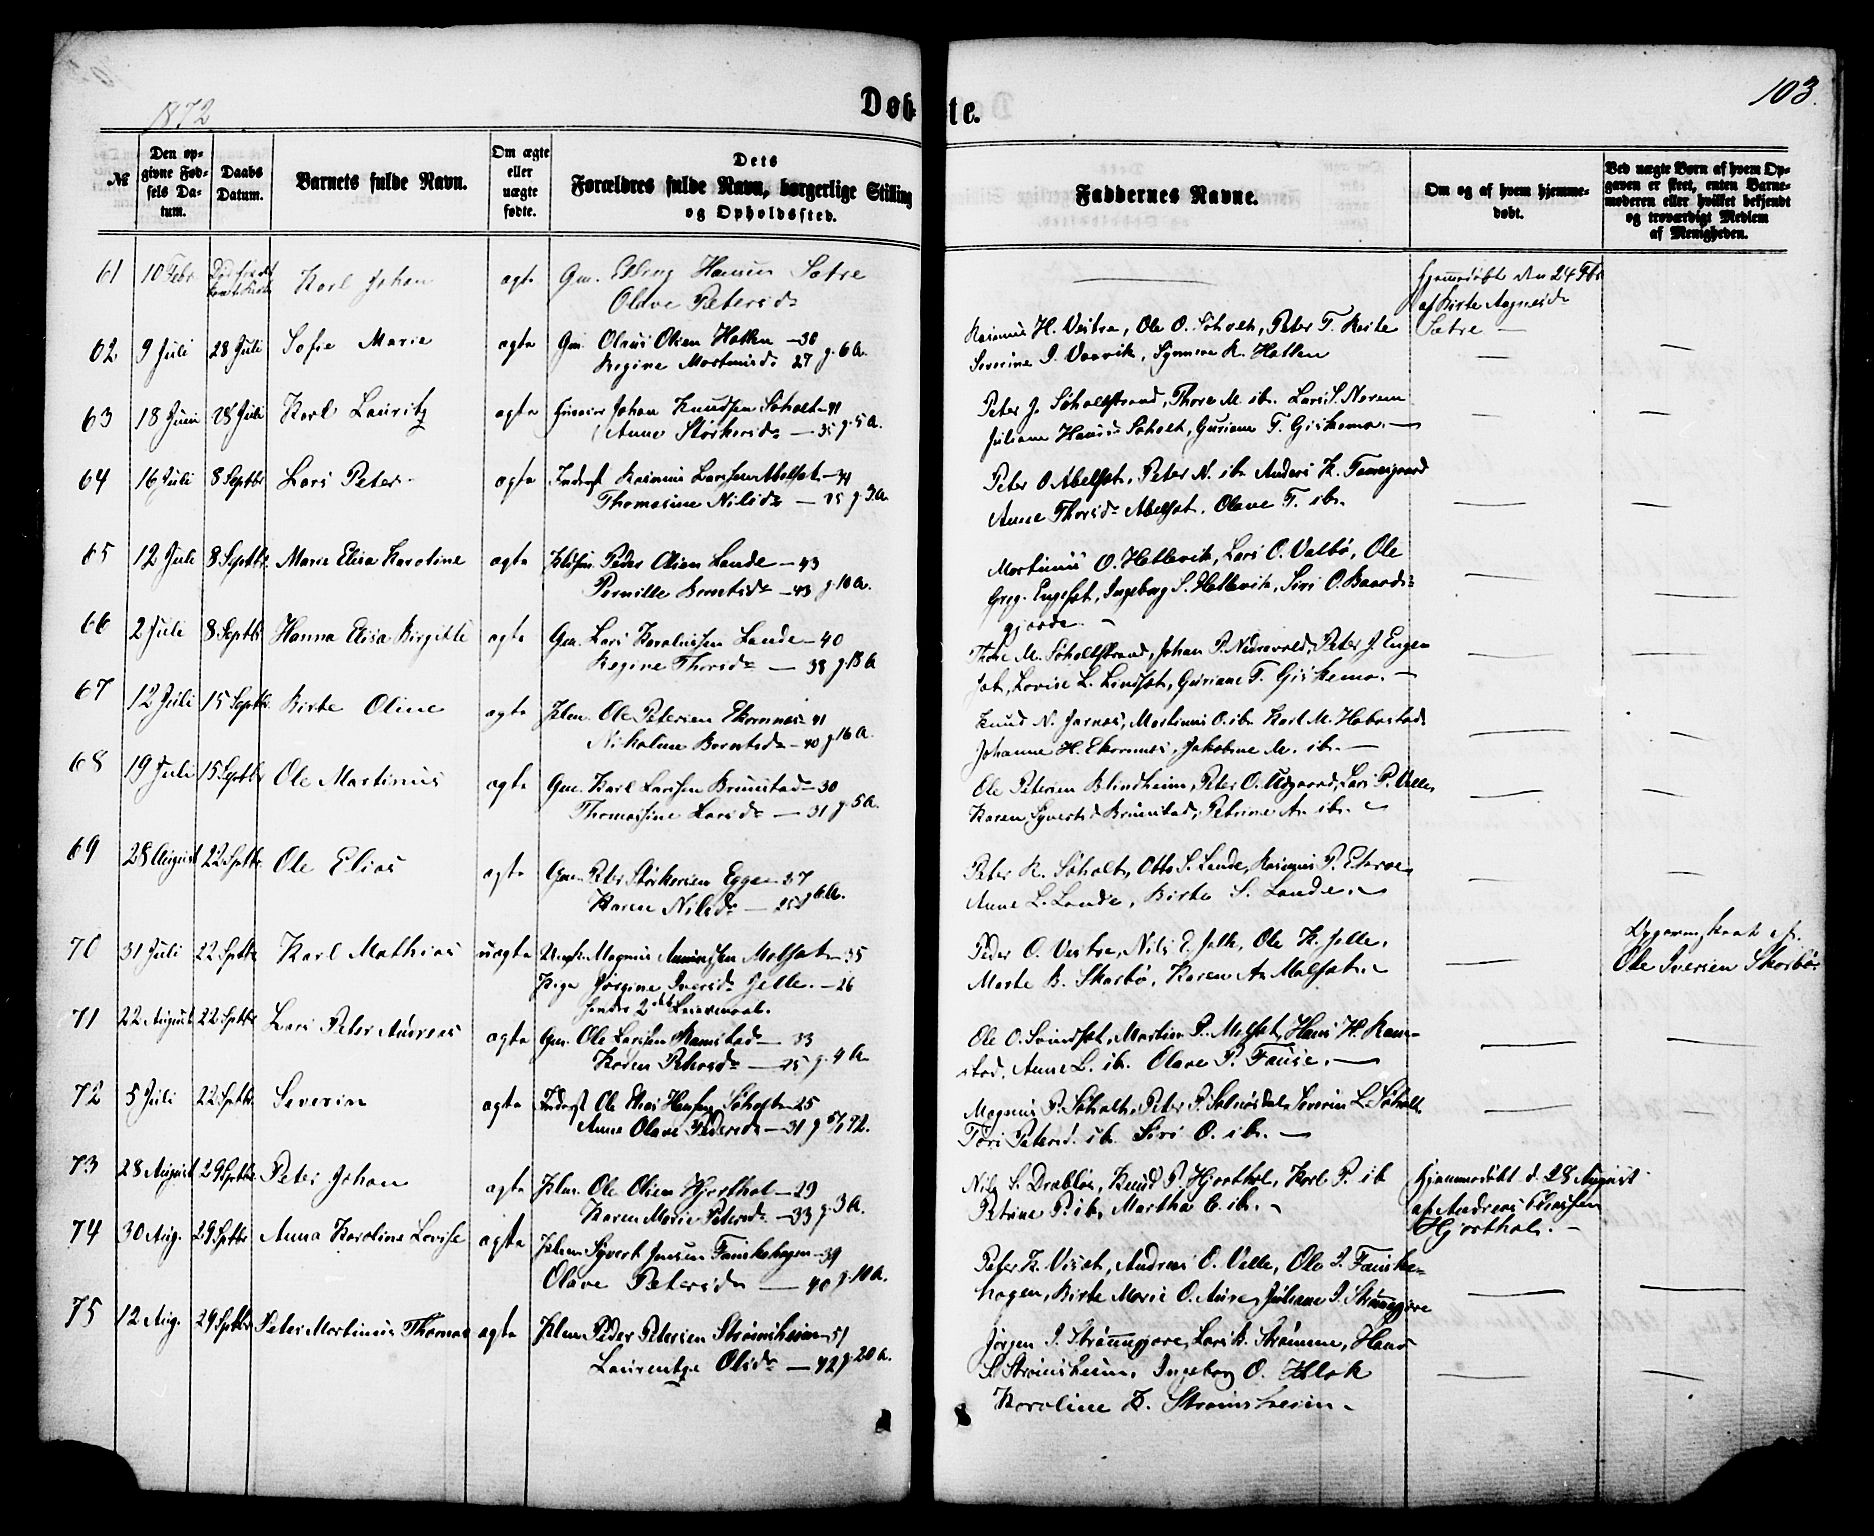 1872
Døb-
te.
103.
№
Den op-
givne Fød-
sels Da-
tum.
Daabs
Datum.
Barnets fulde Navn.
Om ægte
eller
uægte
fødte.
Dets
Forældres fulde Navn, borgerlige Stilling
og Opholdssted.
Faddernes Navne.
Om og af hvem hjemme-
døbt.
Ved uægte Børn af hvem Op-
gaven er skeet, enten Barne-
moderen eller hvilket bekjendt
og troværdigt Medlem
af Menigheden.
61 10 Febr Karl Johan ægte Gm. Hansen Sætre
Olave Petersd.
Hjemmedøbt den 24 Fbr
af Birte
Sætre —
62 9 Juli 28 Juli Sofie Marie ægte Gm. Olaus Olsen Hatlen — 30
Regine Mortensd. 27 g. 6 A.
Rasmus H. Vestre, Ole O. Søholt, Peter T.
Severine J. Vaavik, Synneve K. Hatlen —
63 18 Juni 28 Juli Karl Lauritz ægte Johan Knudsen Søholt — 41
Anne Størkersd. — 35 g. 5 A.
Peter J. Søholtstrand, Thore M. ib. Lars S. Norem
Juliane Hansd. Søholt, Guriane T. Giskemo. —
64 16 Juli 8 Septbr Lars Peter ægte Inderst Rasmus Larssen Abelset — 31
Thomasine Nilsd. — 25 g. 3 A.
Peter O Abelset, Peter N. ib. Anders K.
Anne Thorsd. Abelset. Olave T. ib.
65 12 Juli 8 Septbr. Marie Elisa Karoline ægte Peder Olsen Lande — 43
Pernille Berntsd. — 43 g. 10 A.
O. Hetlevik, Lars O. Valbø, Ole
Greg. Engeset, Ingeborg S. Hetlevik, Siri O. Baards-
gjærde. —
66 2 Juli 8 Septbr Hanna Elisa Birgitte ægte Gm. Lars Lande — 40
Regine Thorsd. — 38 g. 13 A
Thore M. Søholtstrand, Johan P. Nedrevold, Peter J. Enge-
set, Lovise L. Lindset, Guriane T. Giskemo. —
67 12 Juli 15 Septbr. Birte Oline ægte Jelm. Ole Petersen Ekornnes — 41
Nikoline Berntsd. — 40 g. 16 A.
Knud N. Jarnes, Martinus O. ib. Karl M. Habostad
Johanne H. Ekornnes, Jakobine M. ib. —
68 19 Juli 15 Septbr Ole Martinus ægte Gm. Karl Larssen Brunstad — 30
Thomassine Larsd. — 31 g. 5 A.
Ole Petersen Blindheim, Peter O. Lars P. Velle,
Karen Syvertsd Brunstad, Petrine A. ib. —
69 28 August 22 Septbr Ole Elias ægte Gm. Peter Størkersen Egge — 37
Karen Nilsd. — 25 g. 6 A.
Peter K. Søholt, Otto S. Lande, Rasmus P.
Anne L. Lande, Birte S. Lande. —
70 31 Juli 22 Septbr Karl Mathias uægte Ungk. Magnus Melset — 35
Pige Jørgine Iversd. Jelle. — 26
2det Leiermaal.
Peder O. Vestre, Nils E. Jelle, Ole K. Jelle,
Marte B. Skarbø, Karen A. Melset. —
Opgaven skeet af
Ole Iversen Skarbø.
71 22 August 22 Septbr. Lars Peter Andreas ægte Gm. Ole Larssen Ramstad — 33
Karen Petersd. — 25 g. 4 A.
Ole O. Svindset, Martin P. Melset, Hans H. Ram-
stad. Anne L. ib. Olave P. Fause. —
72 5 Juli 22 Septbr. Severin ægte Inderst Ole Elias Hansen Søholt — 25
Anne Olave Pedersd. — 31
Magnus P. Søholt, Peter P. Solnørdal, Severin L. Søholt,
Petersd. ib. Siri O. ib. —
73 28 August 29 Septbr Peter Johan ægte Jelm. Ole Olsen Hjorthol — 29
Karen Marie Petersd. — 33 g. 3 A.
Nils S. Drabløs, Knud P. Hjorthol, Karl P. ib
Petrine P. ib, Martha E. ib. —
Hjemmedøbt d. 28 August
af Andreas
Hjorthol. —
74 30 Aug. 29 Septbr. Anna Karoline Lovise ægte Jelm. Syvert Jensen Fauskehagen — 39
Olave Petersd. — 40 g. 10 A.
Peter K. Viset, Andreas O. Velle, Ole J. Fauske-
hagen, Birte Marie O. Aure, Juliane J.
75 12 Aug. 29 Septbr Peter Martinus Thomas ægte Jelm. Peder Petersen Strømsheim — 51
Laurentze Olsd. — 42 g. 20 A.
Jørgen J. Lars B. Strømme, Hans
P. Strømsheim, Ingeborg O. Klok
Karoline K. Strømsheim —